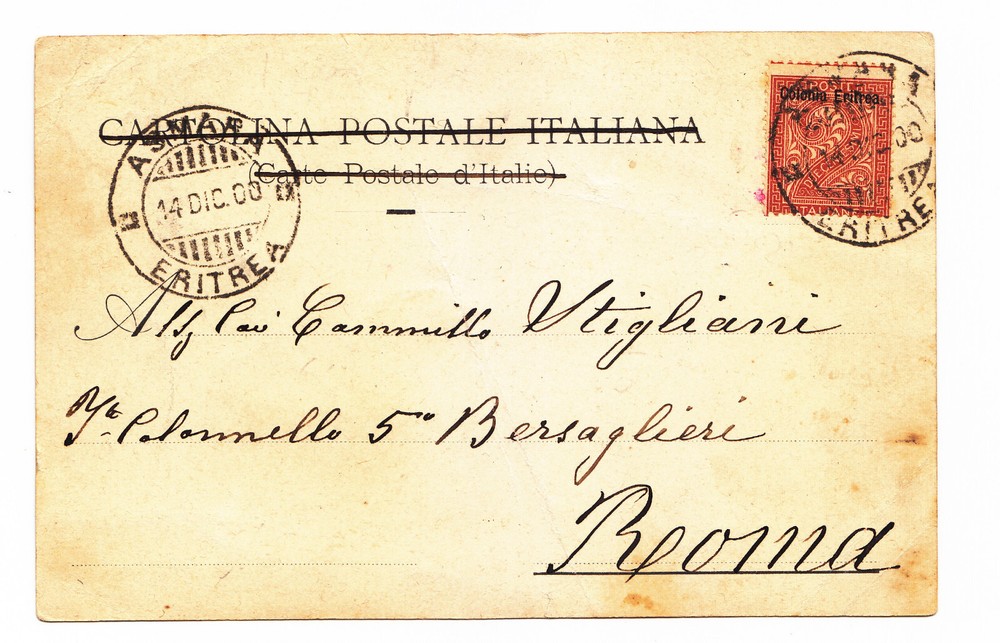 CARTOLINA POSTALE ITALIANA
(Carte Postale d'Italie)
ASMARA
14 DIC. 00
ERITREA
Colonia Eritrea
POSTE
ITALIANE
ASMARA
00
ERITREA
All Cav Cammillo Stigliani
Tte Colonnello 5° Bersaglieri
Roma